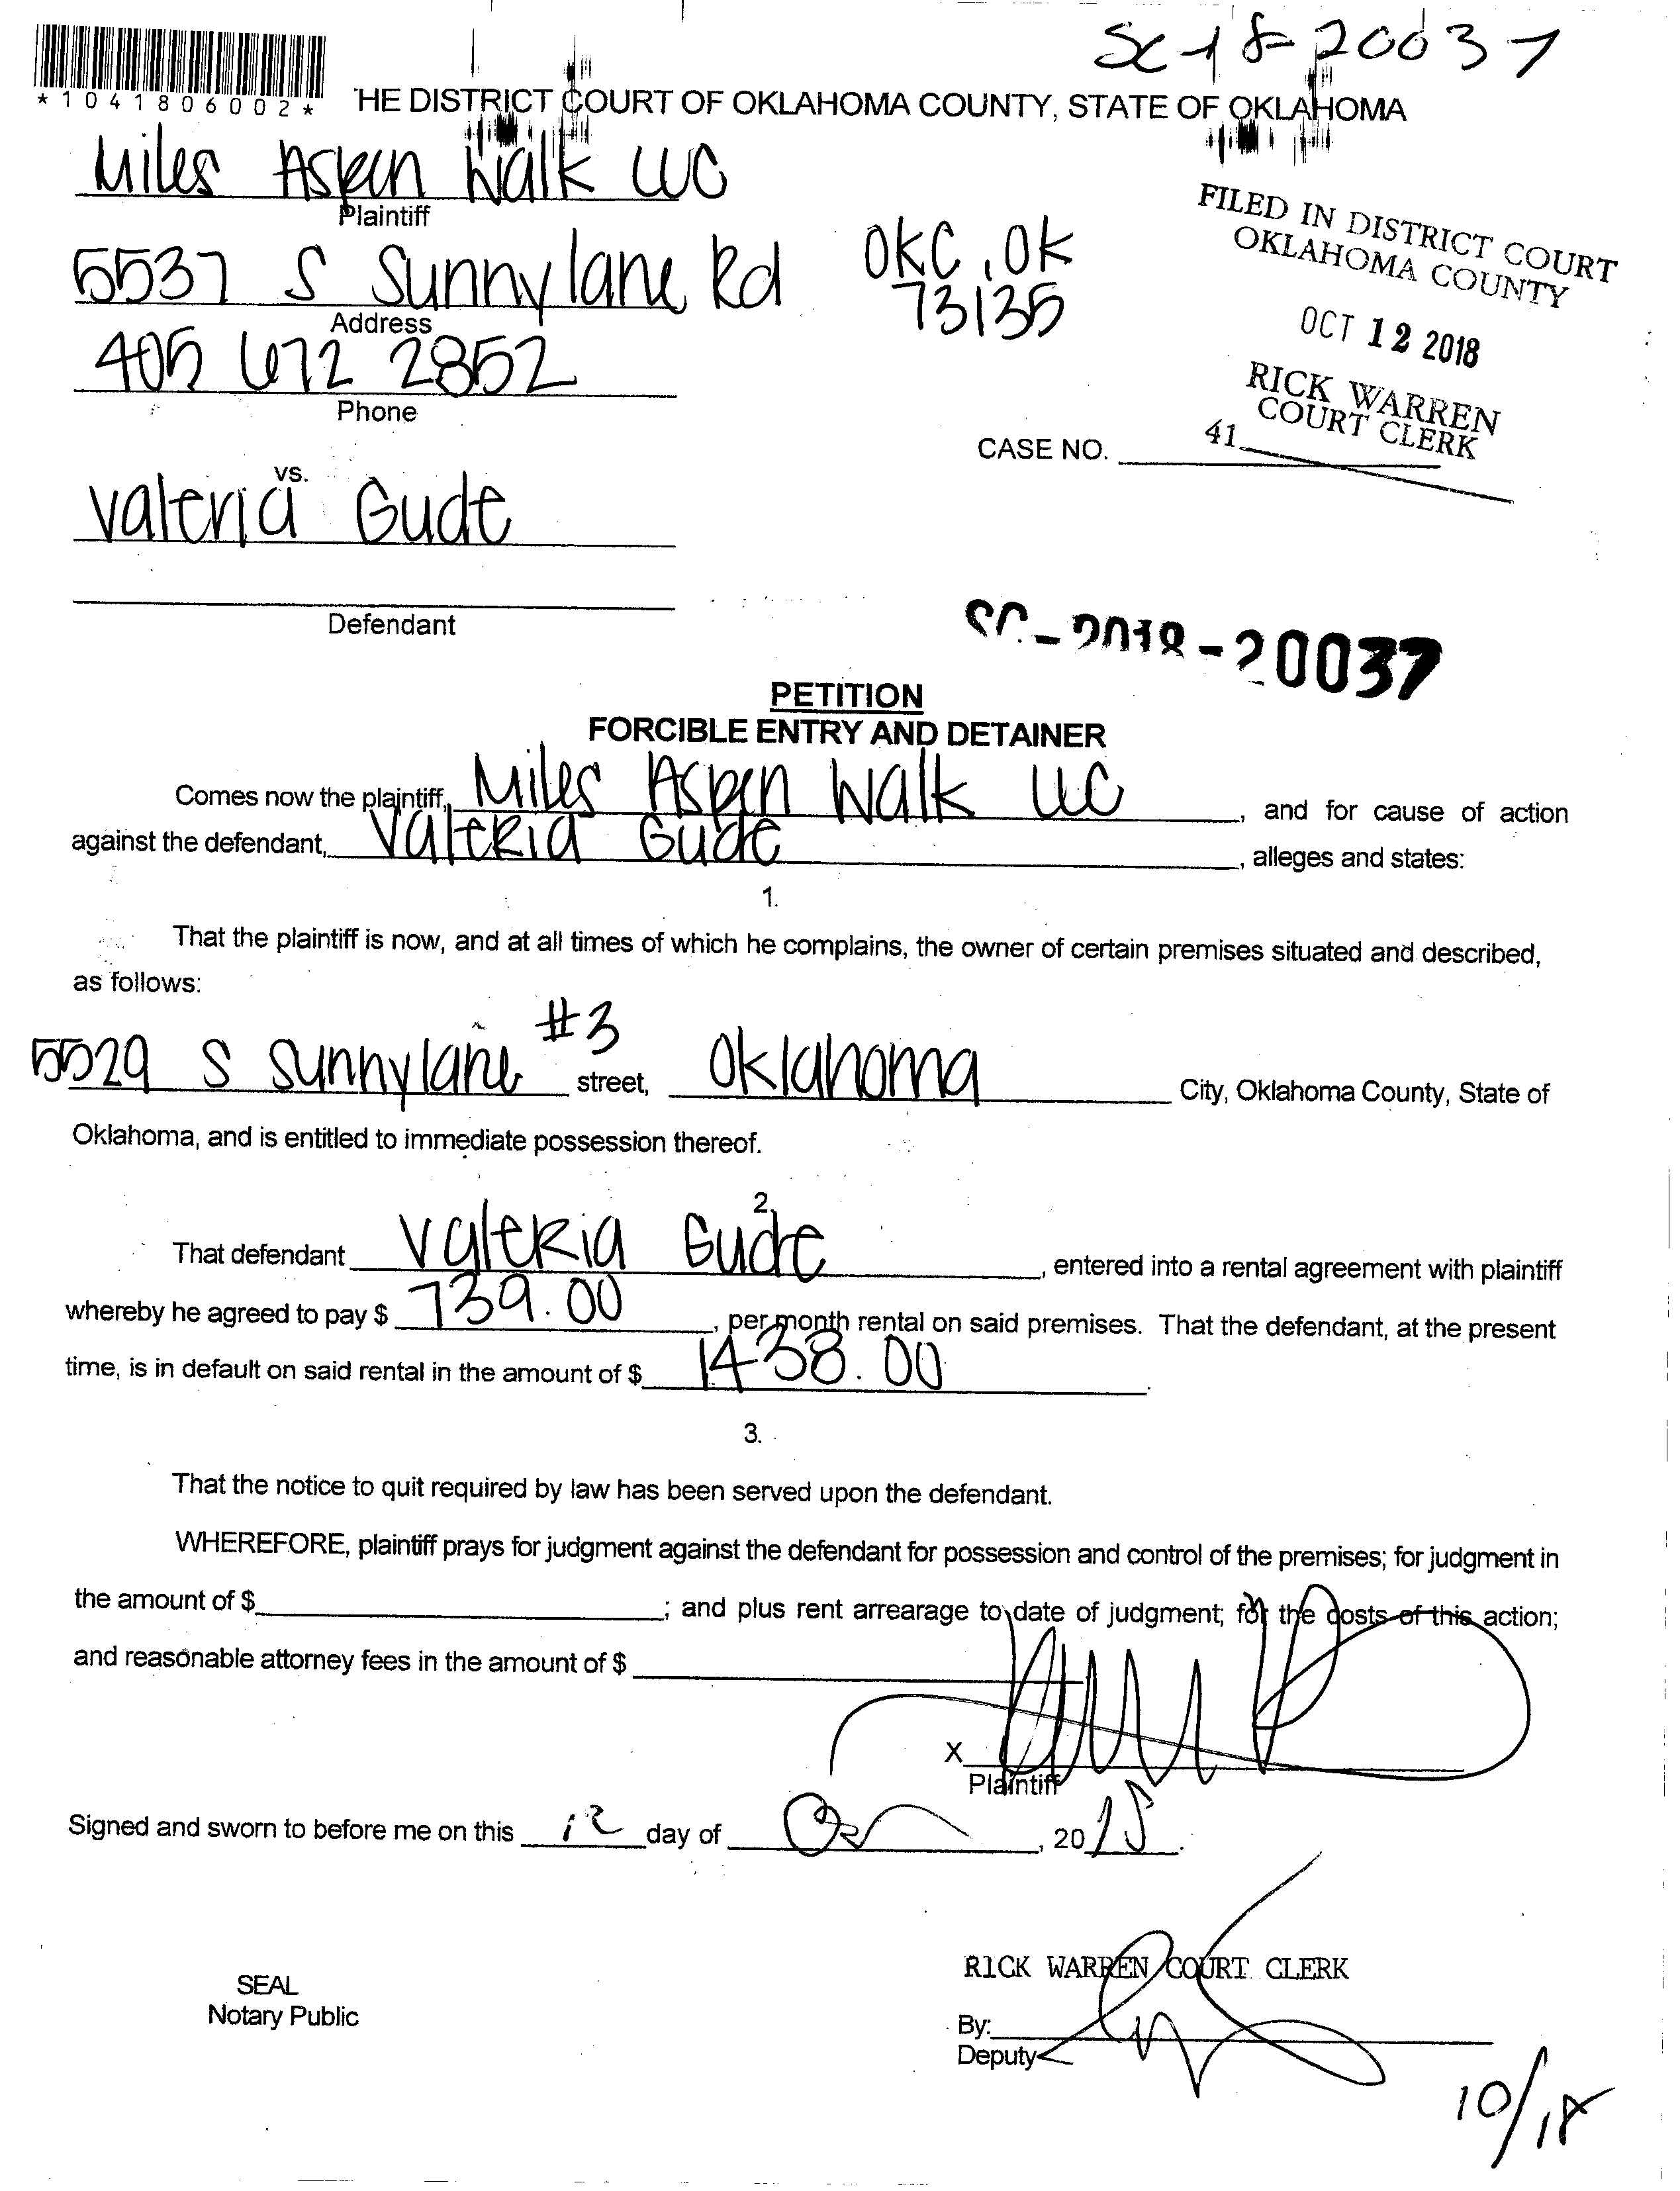 SC-18-20037
*1041806002*
HE DISTRICT COURT OF OKLAHOMA COUNTY, STATE OF OKLAHOMA
Miles Aspen Walk LLC
Plaintiff
5537 S Sunnylane Rd OKC, OK
73135
Address
405 672 2852
Phone
FILED IN DISTRICT COURT
OKLAHOMA COUNTY
OCT 12 2018
RICK WARREN
COURT CLERK
41
CASE NO.
vs.
Valeria Gude
Defendant
SC-2018-20037
PETITION
FORCIBLE ENTRY AND DETAINER
Comes now the plaintiff, Miles Aspen Walk LLC, and for cause of action
against the defendant, Valeria Gude, alleges and states:
1.
That the plaintiff is now, and at all times of which he complains, the owner of certain premises situated and described,
as follows:
5529 S Sunnylane #3 street, Oklahoma City, Oklahoma County, State of
Oklahoma, and is entitled to immediate possession thereof.
2.
That defendant Valeria Gude, entered into a rental agreement with plaintiff
whereby he agreed to pay $ 739.00, per month rental on said premises. That the defendant, at the present
time, is in default on said rental in the amount of $ 1438.00.
3.
That the notice to quit required by law has been served upon the defendant.
WHEREFORE, plaintiff prays for judgment against the defendant for possession and control of the premises; for judgment in
the amount of $ ; and plus rent arrearage to date of judgment; for the costs of this action;
and reasonable attorney fees in the amount of $
X
Plaintiff
Signed and sworn to before me on this 12 day of , 20 18.
RICK WARREN COURT CLERK
SEAL
Notary Public
By:
Deputy
10/18